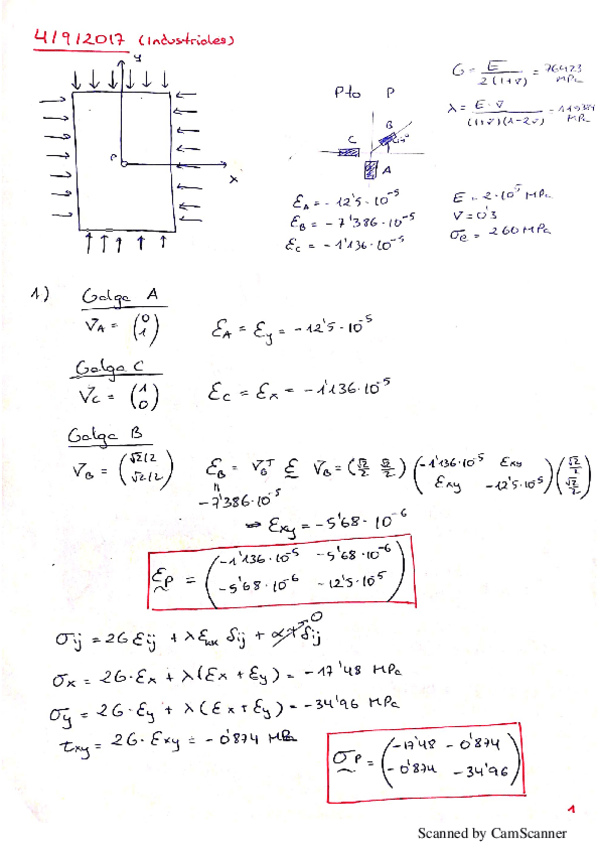 4/9/2017 (Industriales)
y
x
P
Pto P
C
B
A
G = E / 2(1+ν) = 76923 MPa
λ = E·ν / (1+ν)(1-2ν) =
MPa
εA = -12'5·10^-5
εB = -7'386·10^-5
εC = -1'136·10^-5
E = 2·10^5 MPa
ν = 0'3
σe = 260 MPa
1) Galga A
vA = (0 1) εA = εy = -12'5·10^-5
Galga C
vC = (1 0) εC = εx = -1'136·10^-5
Galga B
vB = (√2/2 √2/2) εB = vB^T ε vB = (√2/2 √2/2) (-1'136·10^-5 εxy εxy -12'5·10^-5) (√2/2 √2/2)
-7'386·10^-5
⇒ εxy = -5'68·10^-6
εP = (-1'136·10^-5 -5'68·10^-6 -5'68·10^-6 -12'5·10^-5)
σij = 2G εij + λ εkk δij + α T δij 0
σx = 2G·εx + λ(εx + εy) = -17'48 MPa
σy = 2G·εy + λ(εx + εy) = -34'96 MPa
τxy = 2G·εxy = -0'874 MPa
σP = (-17'48 -0'874 -0'874 -34'96)
1
Scanned by CamScanner